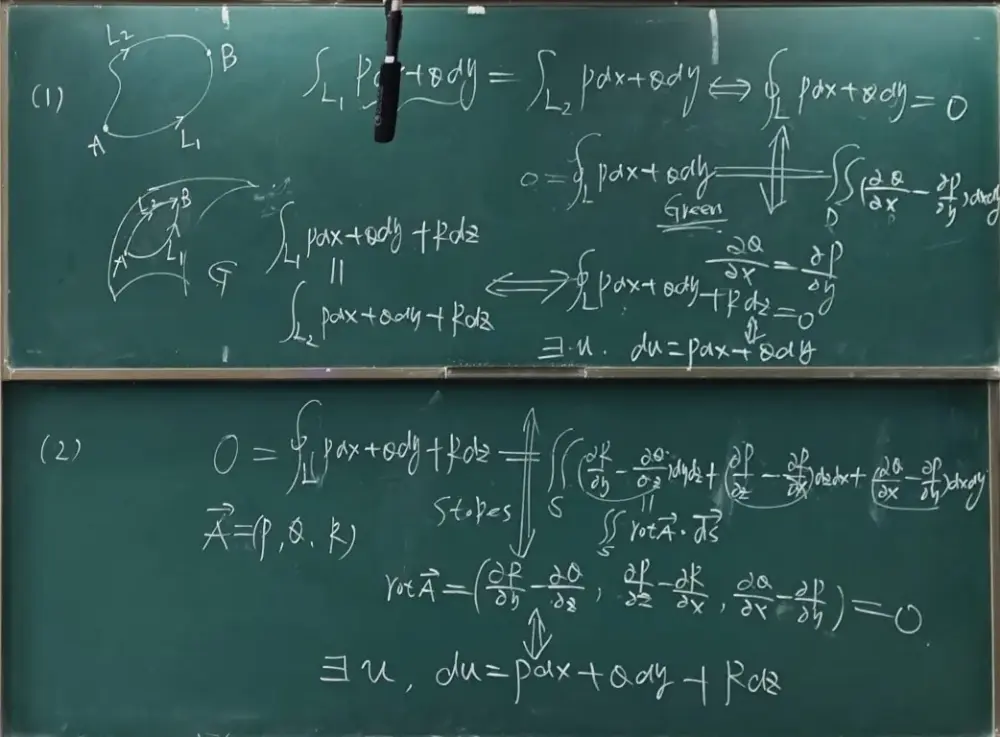 (1) L₂ B A L₁ ∫_{L₁} Pdx+Qdy = ∫_{L₂} Pdx+Qdy ⟺ ∮_L Pdx+Qdy = 0
0 = ∮_L Pdx+Qdy = ∬_D (∂Q/∂x − ∂P/∂y)dxdy
Green
L₂ B A L₁ G ∫_{L₁} Pdx+Qdy+Rdz
∂Q/∂x = ∂P/∂y
=
∫_{L₂} Pdx+Qdy+Rdz ⟺ ∮_L Pdx+Qdy+Rdz=0
⇕
∃ u. du = Pdx+Qdy
(2) 0 = ∮_L Pdx+Qdy+Rdz = ∬_S (∂R/∂y − ∂Q/∂z)dydz + (∂P/∂z − ∂/∂x)dzdx + (∂Q/∂x − ∂P/∂y)dxdy
Stokes =
A⃗=(P,Q,R) ∬_S rotA⃗·dS⃗
rotA⃗ = (∂R/∂y − ∂Q/∂z, ∂P/∂z − ∂R/∂x, ∂Q/∂x − ∂P/∂y) = 0
⇕
∃ u, du = Pdx+Qdy+Rdz